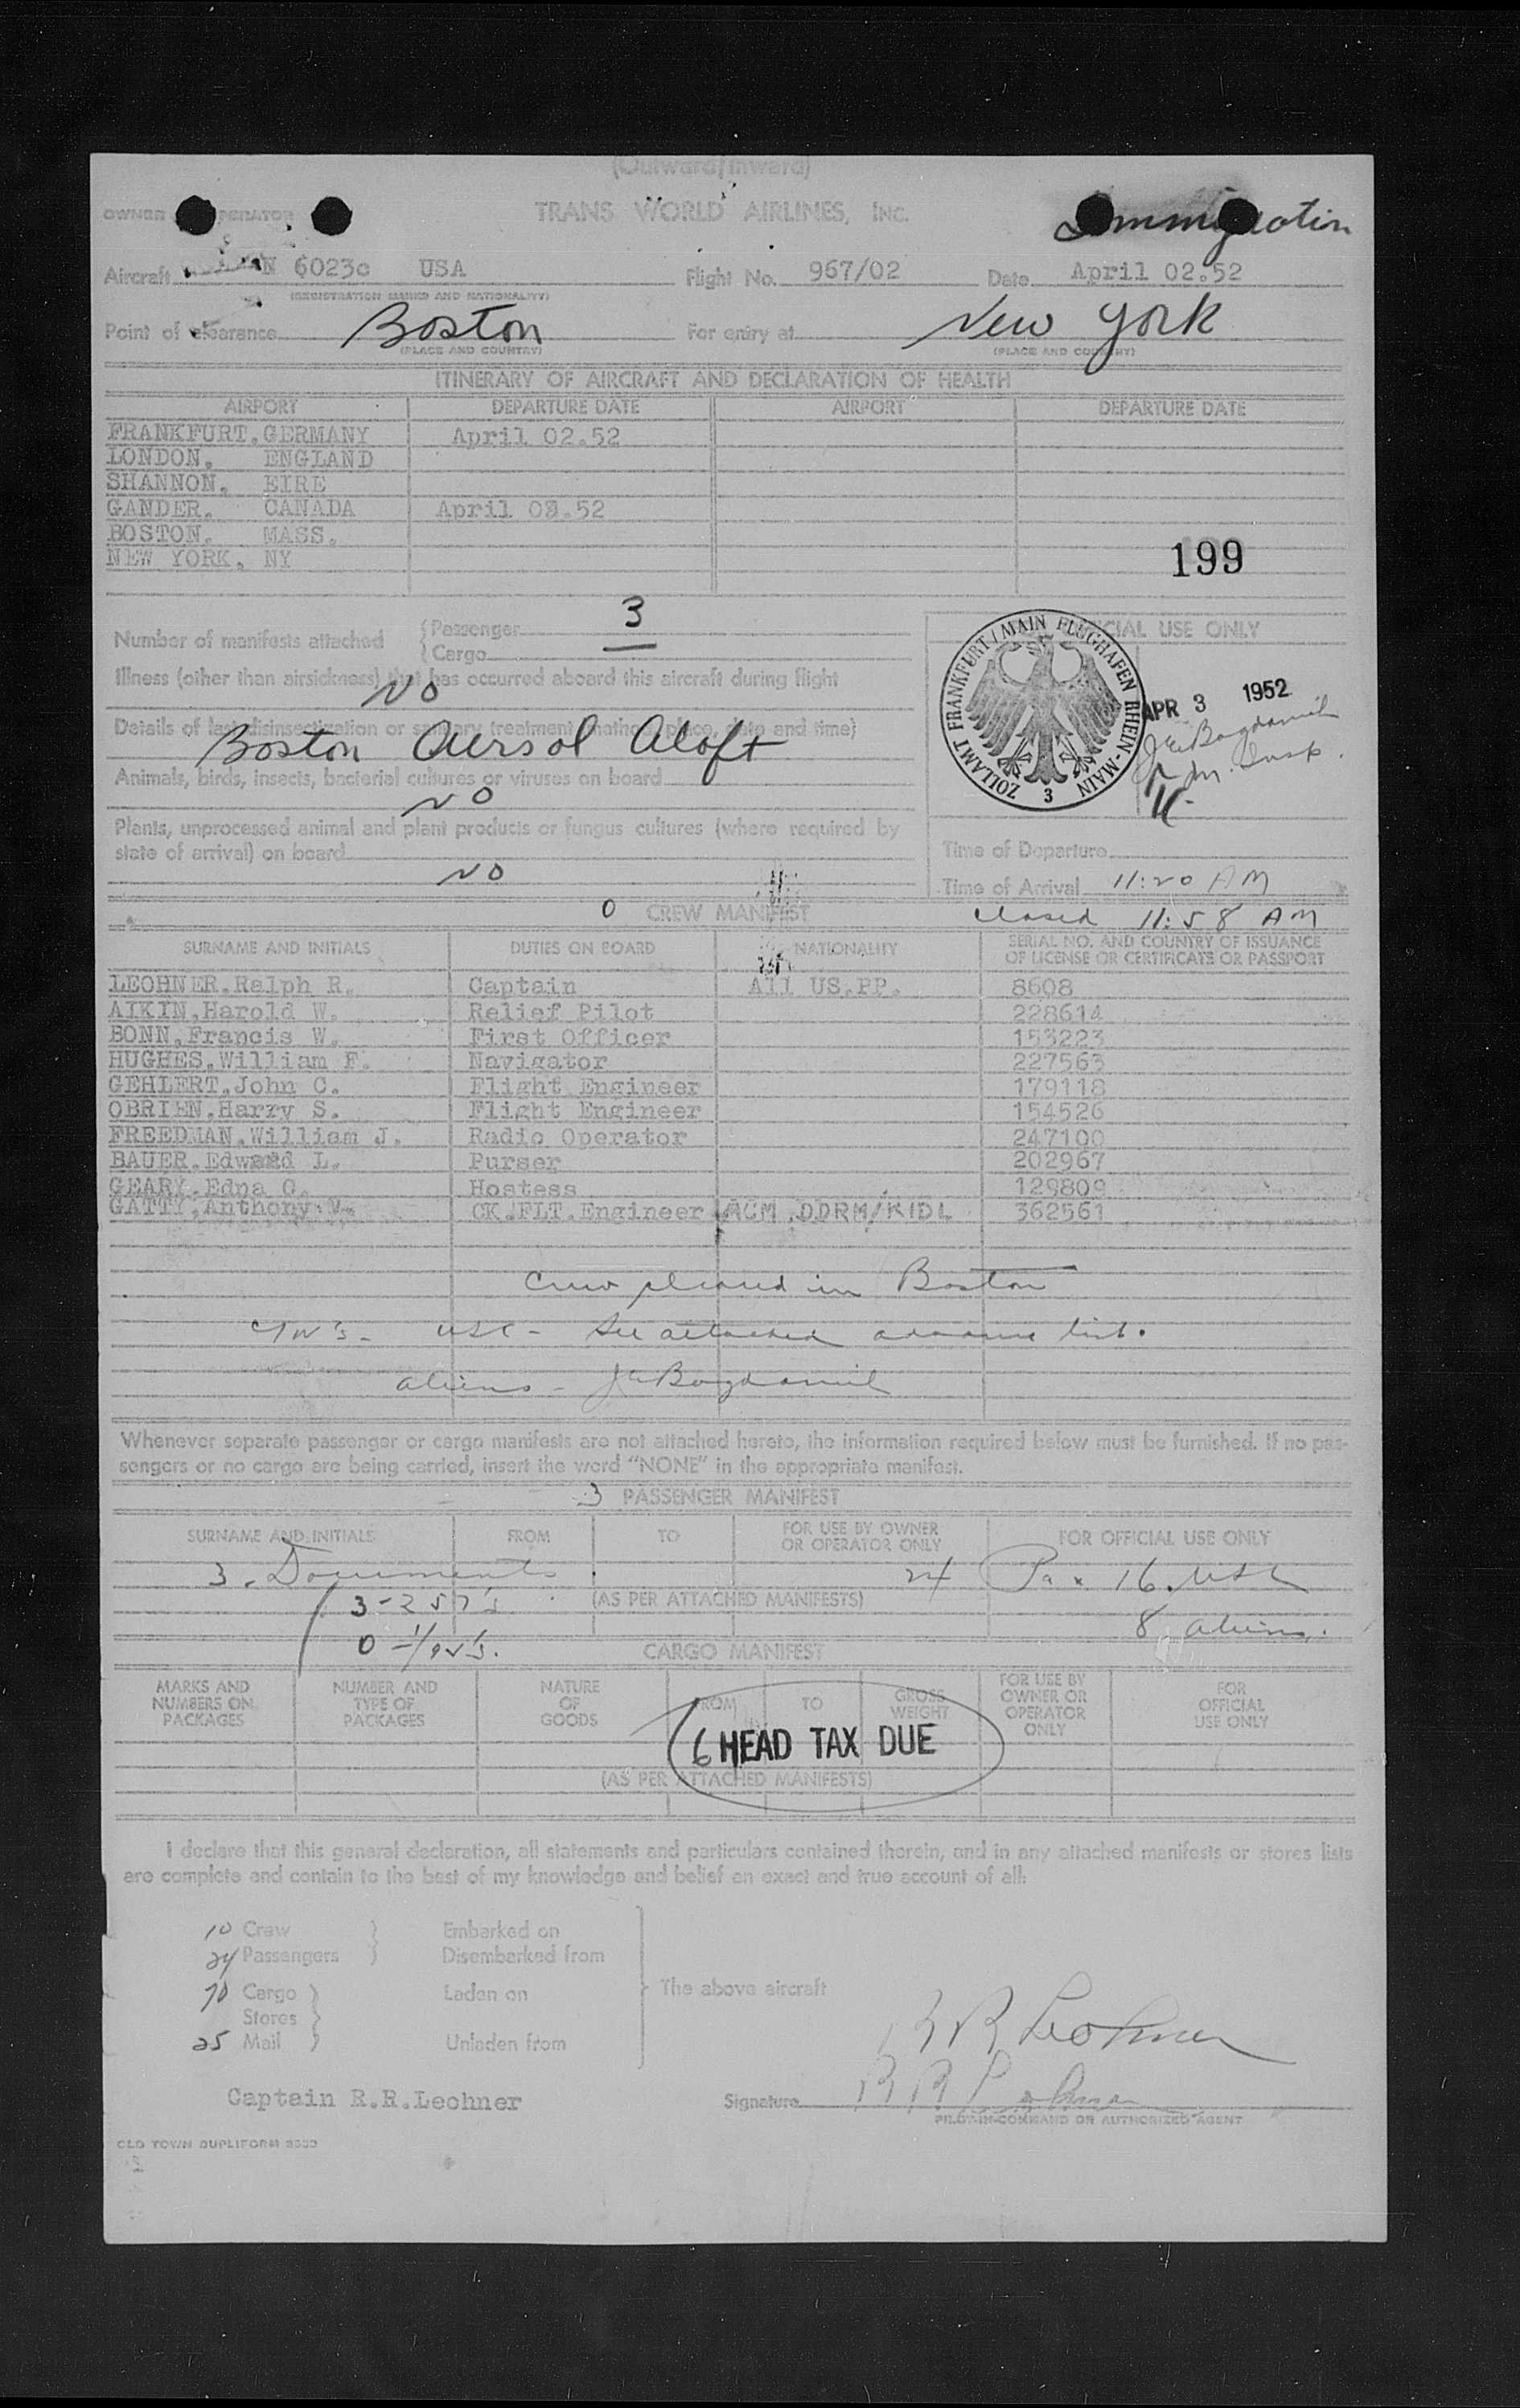 (Outward/Inward)
OWNER OPERATOR TRANS WORLD AIRLINES, INC. Immigration
Aircraft N 6023c USA Flight No. 967/02 Date April 02.52
(REGISTRATION MARKS AND NATIONALITY)
Point of clearance Boston For entry at New York
(PLACE AND COUNTRY) (PLACE AND COUNTRY)
ITINERARY OF AIRCRAFT AND DECLARATION OF HEALTH
AIRPORT DEPARTURE DATE AIRPORT DEPARTURE DATE
FRANKFURT, GERMANY April 02.52
LONDON, ENGLAND
SHANNON, EIRE
GANDER, CANADA April 03.52
BOSTON, MASS.
NEW YORK, NY
199
Number of manifests attached {Passenger 3
{Cargo
OFFICIAL USE ONLY
ZOLLAMT FRANKFURT/MAIN FLUGHAFEN RHEIN-MAIN 3
APR 3 1952
Illness (other than airsickness) that has occurred aboard this aircraft during flight
NO
Details of last disinsectization or sanitary treatment (method, place, date and time)
Boston Aersol Aloft
Animals, birds, insects, bacterial cultures or viruses on board
NO
Plants, unprocessed animal and plant products or fungus cultures (where required by
state of arrival) on board
NO
Time of Departure
Time of Arrival 11:20 AM
0 CREW MANIFEST closed 11:58 AM
SURNAME AND INITIALS DUTIES ON BOARD NATIONALITY SERIAL NO. AND COUNTRY OF ISSUANCE
OF LICENSE OR CERTIFICATE OR PASSPORT
LEOHNER,Ralph R. Captain All US.PP. 8608
AIKIN,Harold W. Relief Pilot 228614
BONN,Francis W. First Officer 153223
HUGHES,William F. Navigator 227563
GEHLERT,John C. Flight Engineer 179118
OBRIEN,Harry S. Flight Engineer 154526
FREEDMAN,William J. Radio Operator 247100
BAUER,Edward L. Purser 202967
GEARY,Edna C. Hostess 129809
GATTY,Anthony V. CK.FLT.Engineer ACM.DDRM/KIDL 362561
Crew cleared in Boston
USC - See attached advance list.
aliens -
Whenever separate passenger or cargo manifests are not attached hereto, the information required below must be furnished. If no pas-
sengers or no cargo are being carried, insert the word "NONE" in the appropriate manifest.
3 PASSENGER MANIFEST
SURNAME AND INITIALS FROM TO FOR USE BY OWNER
OR OPERATOR ONLY FOR OFFICIAL USE ONLY
3 Documents 24 Pax 16 USC
3-257's (AS PER ATTACHED MANIFESTS) 8 aliens.
0
CARGO MANIFEST
MARKS AND
NUMBERS ON
PACKAGES
NUMBER AND
TYPE OF
PACKAGES
NATURE
OF
GOODS
FROM TO
GROSS
WEIGHT
FOR USE BY
OWNER OR
OPERATOR
ONLY
FOR
OFFICIAL
USE ONLY
6 HEAD TAX DUE
(AS PER ATTACHED MANIFESTS)
I declare that this general declaration, all statements and particulars contained therein, and in any attached manifests or stores lists
are complete and contain to the best of my knowledge and belief an exact and true account of all:
10 Crew } Embarked on
24 Passengers } Disembarked from
70 Cargo } Laden on The above aircraft
Stores
25 Mail } Unladen from
R R Leohner
Captain R.R.Leohner Signature R R Leohner
PILOT-IN-COMMAND OR AUTHORIZED AGENT
OLD TOWN DUPLIFORM